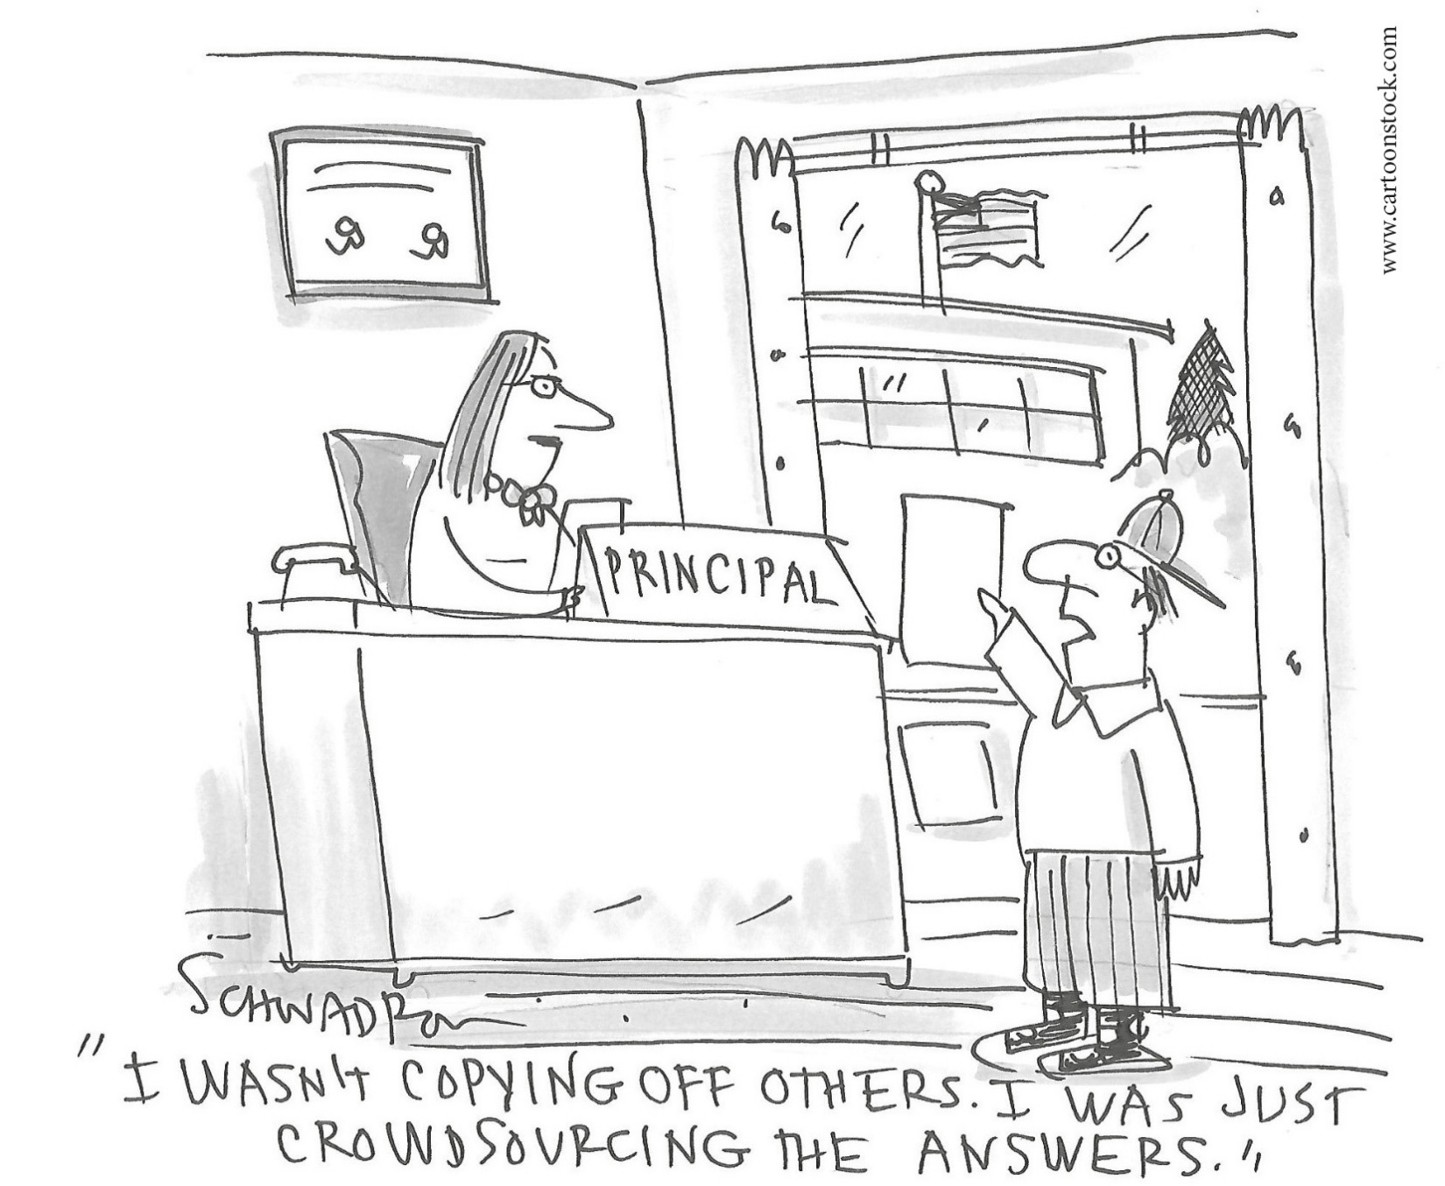 www.cartoonstock.com
PRINCIPAL
SCHWADRON
"I WASN'T COPYING OFF OTHERS. I WAS JUST
CROWDSOURCING THE ANSWERS."